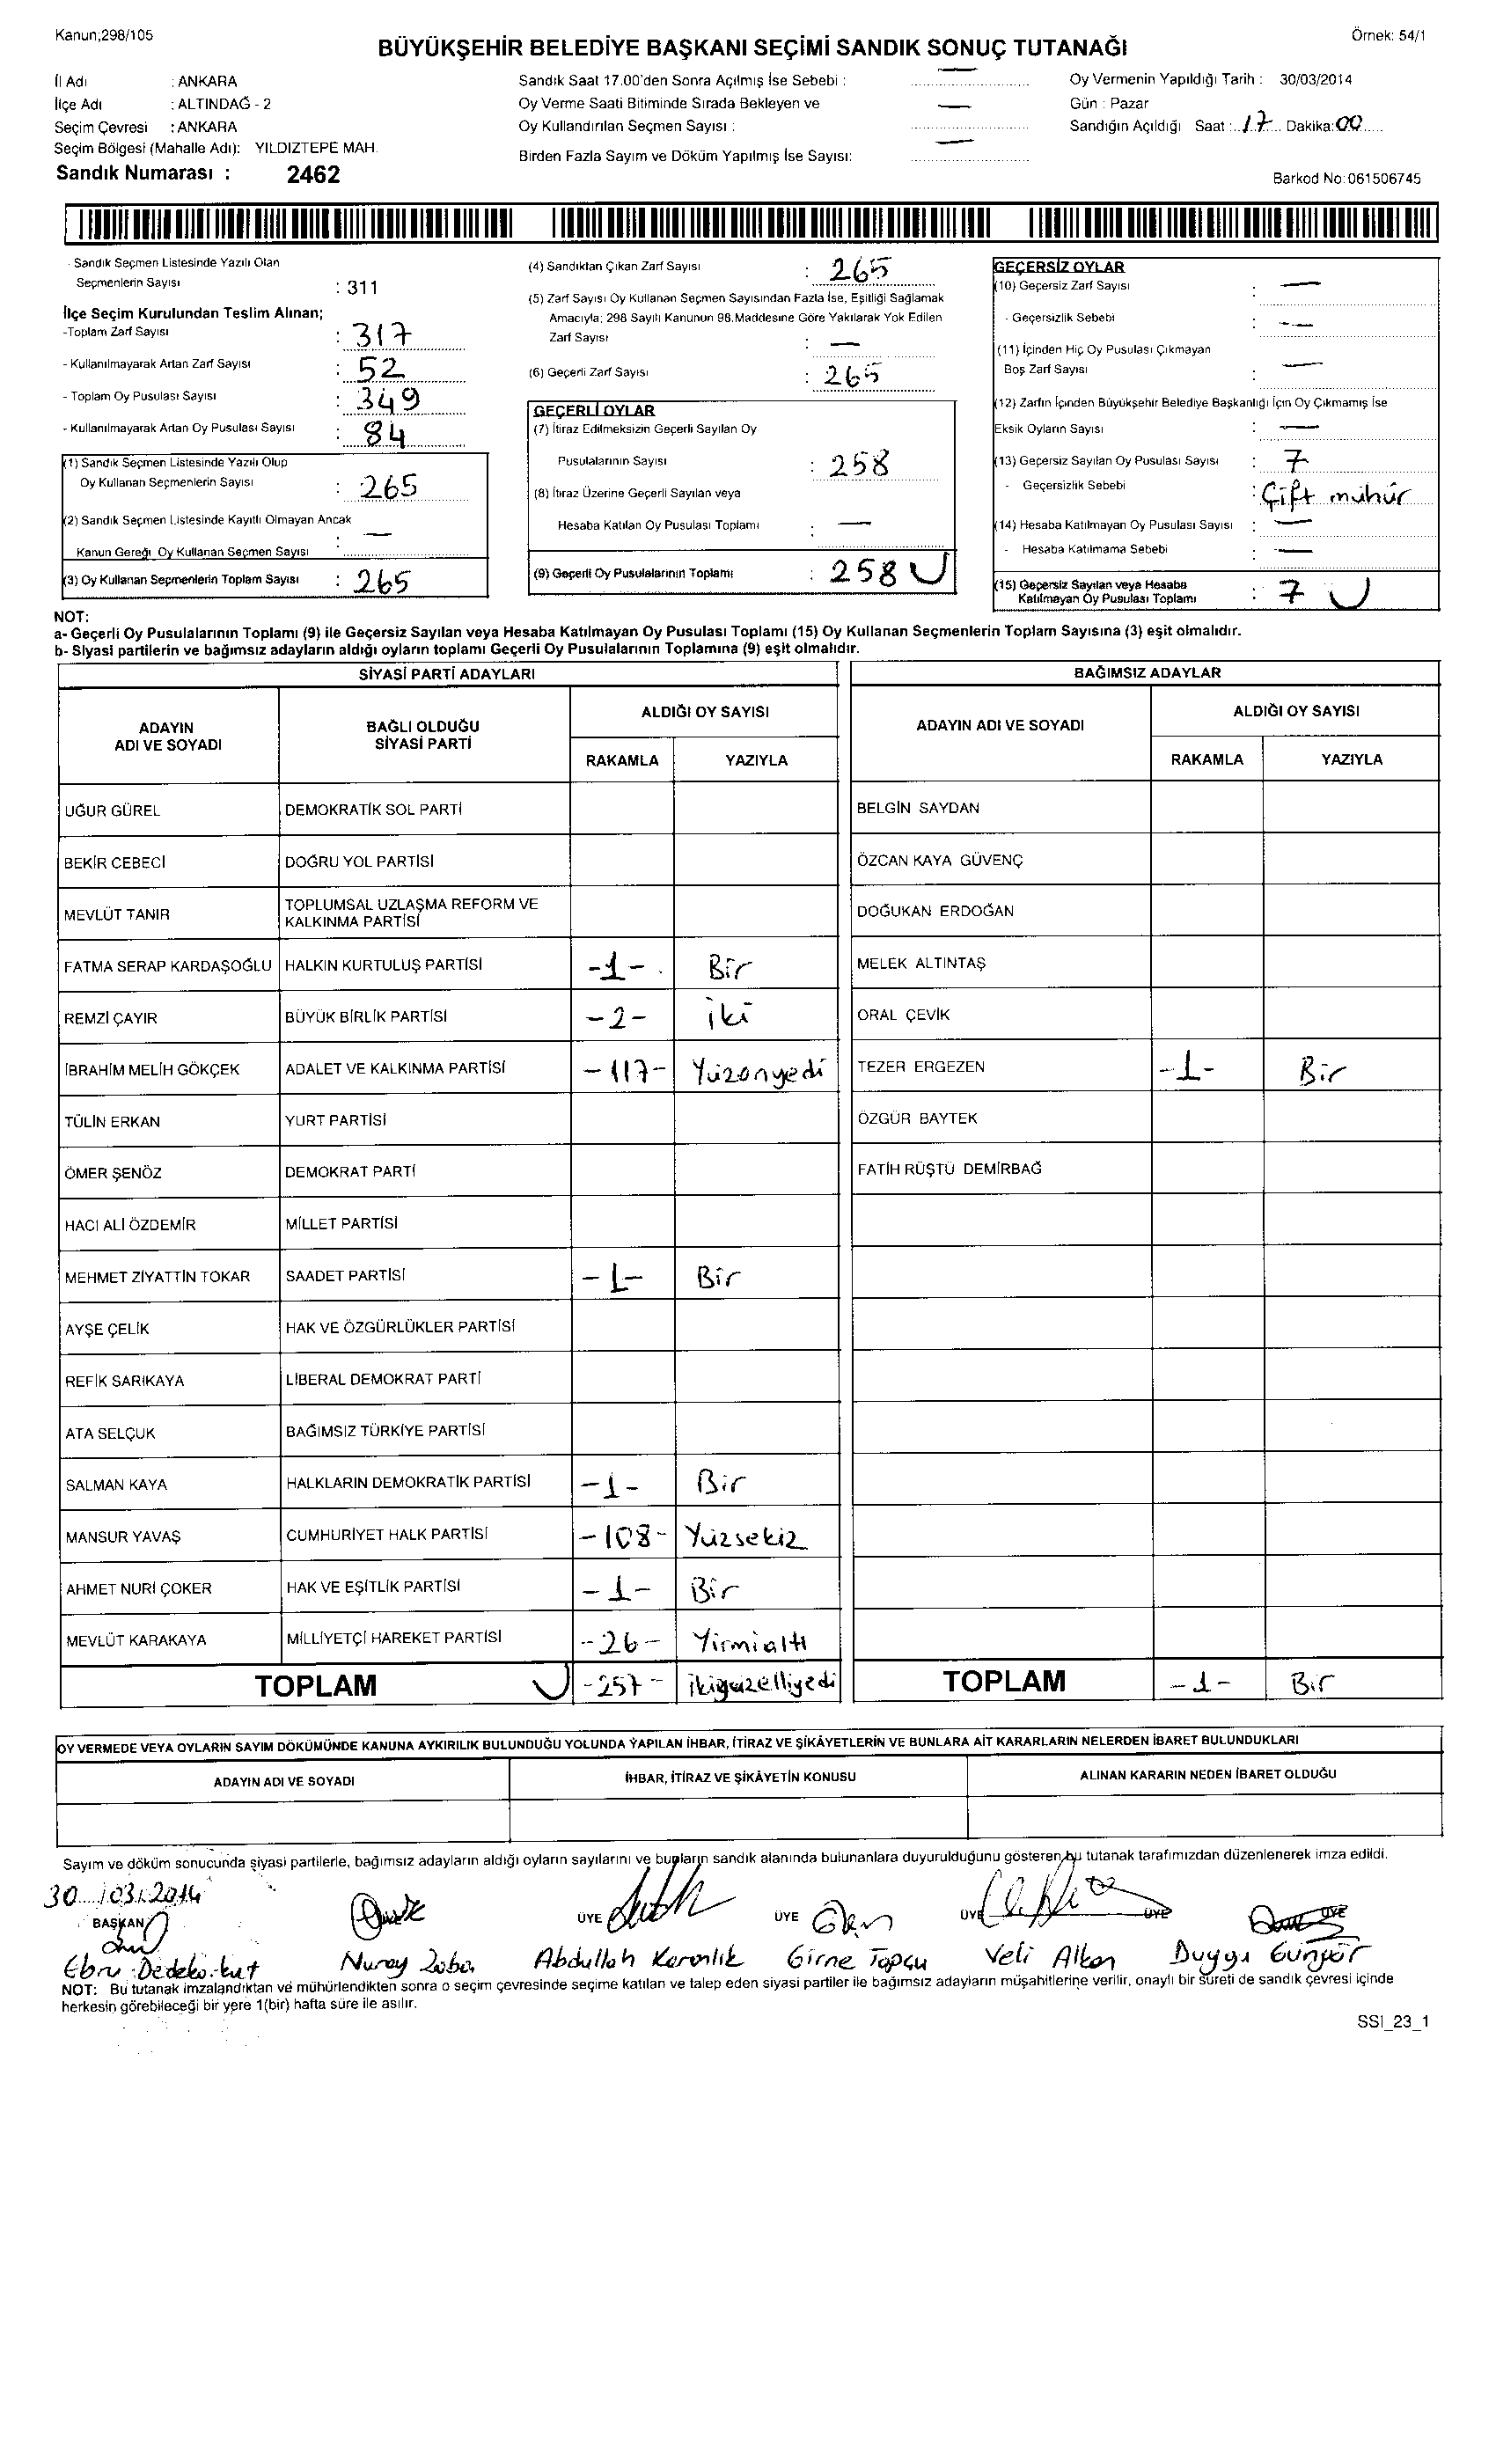 Kanun;298/105
Örnek: 54/1
BÜYÜKŞEHİR BELEDİYE BAŞKANI SEÇİMİ SANDIK SONUÇ TUTANAĞI
İl Adı : ANKARA
İlçe Adı : ALTINDAĞ - 2
Seçim Çevresi : ANKARA
Seçim Bölgesi (Mahalle Adı): YILDIZTEPE MAH.
Sandık Numarası : 2462
Sandık Saat 17.00'den Sonra Açılmış İse Sebebi : —
Oy Verme Saati Bitiminde Sırada Bekleyen ve
Oy Kullandırılan Seçmen Sayısı : —
Birden Fazla Sayım ve Döküm Yapılmış İse Sayısı: —
Oy Vermenin Yapıldığı Tarih : 30/03/2014
Gün : Pazar
Sandığın Açıldığı Saat : 17 Dakika: 00
Barkod No:061506745
- Sandık Seçmen Listesinde Yazılı Olan
Seçmenlerin Sayısı : 311
İlçe Seçim Kurulundan Teslim Alınan;
-Toplam Zarf Sayısı : 317
- Kullanılmayarak Artan Zarf Sayısı : 52
- Toplam Oy Pusulası Sayısı : 349
- Kullanılmayarak Artan Oy Pusulası Sayısı : 84
(1) Sandık Seçmen Listesinde Yazılı Olup
Oy Kullanan Seçmenlerin Sayısı : 265
(2) Sandık Seçmen Listesinde Kayıtlı Olmayan Ancak
Kanun Gereği Oy Kullanan Seçmen Sayısı : —
(3) Oy Kullanan Seçmenlerin Toplam Sayısı : 265
(4) Sandıktan Çıkan Zarf Sayısı : 265
(5) Zarf Sayısı Oy Kullanan Seçmen Sayısından Fazla İse, Eşitliği Sağlamak
Amacıyla; 298 Sayılı Kanunun 98.Maddesine Göre Yakılarak Yok Edilen
Zarf Sayısı : —
(6) Geçerli Zarf Sayısı : 265
GEÇERLİ OYLAR
(7) İtiraz Edilmeksizin Geçerli Sayılan Oy
Pusulalarının Sayısı : 258
(8) İtiraz Üzerine Geçerli Sayılan veya
Hesaba Katılan Oy Pusulası Toplamı : —
(9) Geçerli Oy Pusulalarının Toplamı : 258
GEÇERSİZ OYLAR
(10) Geçersiz Zarf Sayısı : —
- Geçersizlik Sebebi : —
(11) İçinden Hiç Oy Pusulası Çıkmayan
Boş Zarf Sayısı : —
(12) Zarfın İçinden Büyükşehir Belediye Başkanlığı İçin Oy Çıkmamış İse
Eksik Oyların Sayısı : —
(13) Geçersiz Sayılan Oy Pusulası Sayısı : 7
- Geçersizlik Sebebi : Çift mühür
(14) Hesaba Katılmayan Oy Pusulası Sayısı : —
- Hesaba Katılmama Sebebi : —
(15) Geçersiz Sayılan veya Hesaba
Katılmayan Oy Pusulası Toplamı : 7
NOT:
a- Geçerli Oy Pusulalarının Toplamı (9) ile Geçersiz Sayılan veya Hesaba Katılmayan Oy Pusulası Toplamı (15) Oy Kullanan Seçmenlerin Toplam Sayısına (3) eşit olmalıdır.
b- Siyasi partilerin ve bağımsız adayların aldığı oyların toplamı Geçerli Oy Pusulalarının Toplamına (9) eşit olmalıdır.
SİYASİ PARTİ ADAYLARI
ADAYIN ADI VE SOYADI BAĞLI OLDUĞU SİYASİ PARTİ ALDIĞI OY SAYISI
RAKAMLA YAZIYLA
UĞUR GÜREL DEMOKRATİK SOL PARTİ
BEKİR CEBECİ DOĞRU YOL PARTİSİ
MEVLÜT TANIR TOPLUMSAL UZLAŞMA REFORM VE KALKINMA PARTİSİ
FATMA SERAP KARDAŞOĞLU HALKIN KURTULUŞ PARTİSİ -1- Bir
REMZİ ÇAYIR BÜYÜK BİRLİK PARTİSİ -2- iki
İBRAHİM MELİH GÖKÇEK ADALET VE KALKINMA PARTİSİ -117- Yüzonyedi
TÜLİN ERKAN YURT PARTİSİ
ÖMER ŞENÖZ DEMOKRAT PARTİ
HACI ALİ ÖZDEMİR MİLLET PARTİSİ
MEHMET ZİYATTİN TOKAR SAADET PARTİSİ -1- Bir
AYŞE ÇELİK HAK VE ÖZGÜRLÜKLER PARTİSİ
REFİK SARIKAYA LİBERAL DEMOKRAT PARTİ
ATA SELÇUK BAĞIMSIZ TÜRKİYE PARTİSİ
SALMAN KAYA HALKLARIN DEMOKRATİK PARTİSİ -1- Bir
MANSUR YAVAŞ CUMHURİYET HALK PARTİSİ -108- Yüzsekiz
AHMET NURİ ÇOKER HAK VE EŞİTLİK PARTİSİ -1- Bir
MEVLÜT KARAKAYA MİLLİYETÇİ HAREKET PARTİSİ -26- Yirmialtı
TOPLAM -257- ikiyüzelliyedi
BAĞIMSIZ ADAYLAR
ADAYIN ADI VE SOYADI ALDIĞI OY SAYISI
RAKAMLA YAZIYLA
BELGİN SAYDAN
ÖZCAN KAYA GÜVENÇ
DOĞUKAN ERDOĞAN
MELEK ALTINTAŞ
ORAL ÇEVİK
TEZER ERGEZEN -1- Bir
ÖZGÜR BAYTEK
FATİH RÜŞTÜ DEMİRBAĞ
TOPLAM -1- Bir
OY VERMEDE VEYA OYLARIN SAYIM DÖKÜMÜNDE KANUNA AYKIRILIK BULUNDUĞU YOLUNDA YAPILAN İHBAR, İTİRAZ VE ŞİKÂYETLERİN VE BUNLARA AİT KARARLARIN NELERDEN İBARET BULUNDUKLARI
ADAYIN ADI VE SOYADI İHBAR, İTİRAZ VE ŞİKÂYETİN KONUSU ALINAN KARARIN NEDEN İBARET OLDUĞU
Sayım ve döküm sonucunda siyasi partilerle, bağımsız adayların aldığı oyların sayılarını ve bunların sandık alanında bulunanlara duyurulduğunu gösteren bu tutanak tarafımızdan düzenlenerek imza edildi.
30/03/2014
BAŞKAN ÜYE ÜYE ÜYE ÜYE ÜYE
Ebru Dedekorkut Nuray Abdullah Karanlık Girne Topçu Veli Alkan Duygu Güngör
NOT: Bu tutanak imzalandıktan ve mühürlendikten sonra o seçim çevresinde seçime katılan ve talep eden siyasi partiler ile bağımsız adayların müşahitlerine verilir, onaylı bir sureti de sandık çevresi içinde
herkesin görebileceği bir yere 1(bir) hafta süre ile asılır.
SSI_23_1